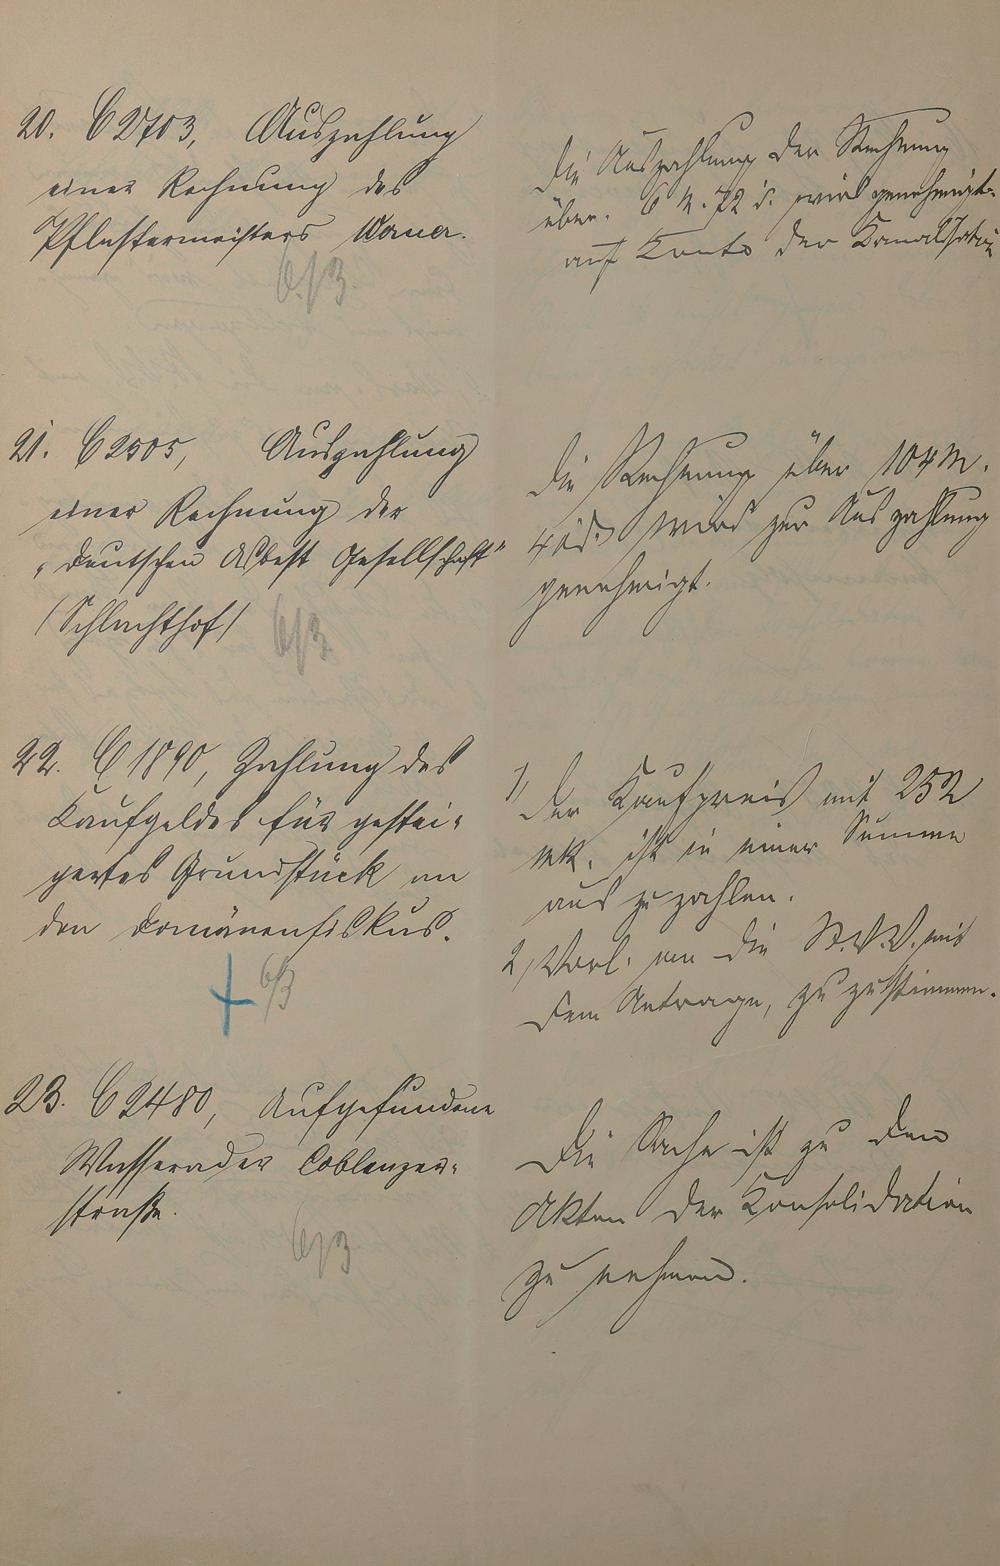 20. C 2703, Auszahlung
einer Rechnung des
Pflastermeisters Wauer.
6./3.
Die Auszahlung der Rechnung
über 6 M. 72 d. wird genehmigt
auf Konto der Kanalisation
21. C 2505, Auszahlung
einer Rechnung der
„Deutschen Asbest Gesellschaft“
/Schlachthof/
6/3.
Die Rechnung über 104 M.
40 d. wird zur Auszahlung
genehmigt.
22. C 1890, Zahlung des
Kaufgeldes für gestei-
gertes Grundstück an
den Domänenfiskus.
6/3
1, Der Kaufpreis mit 252
Mk. ist in einer Summe
aus zu zahlen.
2, Vorl. an die St.V.V. mit
dem Antrage, zuzustimmen.
23. C 2480, Aufgefundene
Wasserader Coblenzer-
straße.
6/3
Die Sache ist zu den
Akten der Konsolidation
zu nehmen.